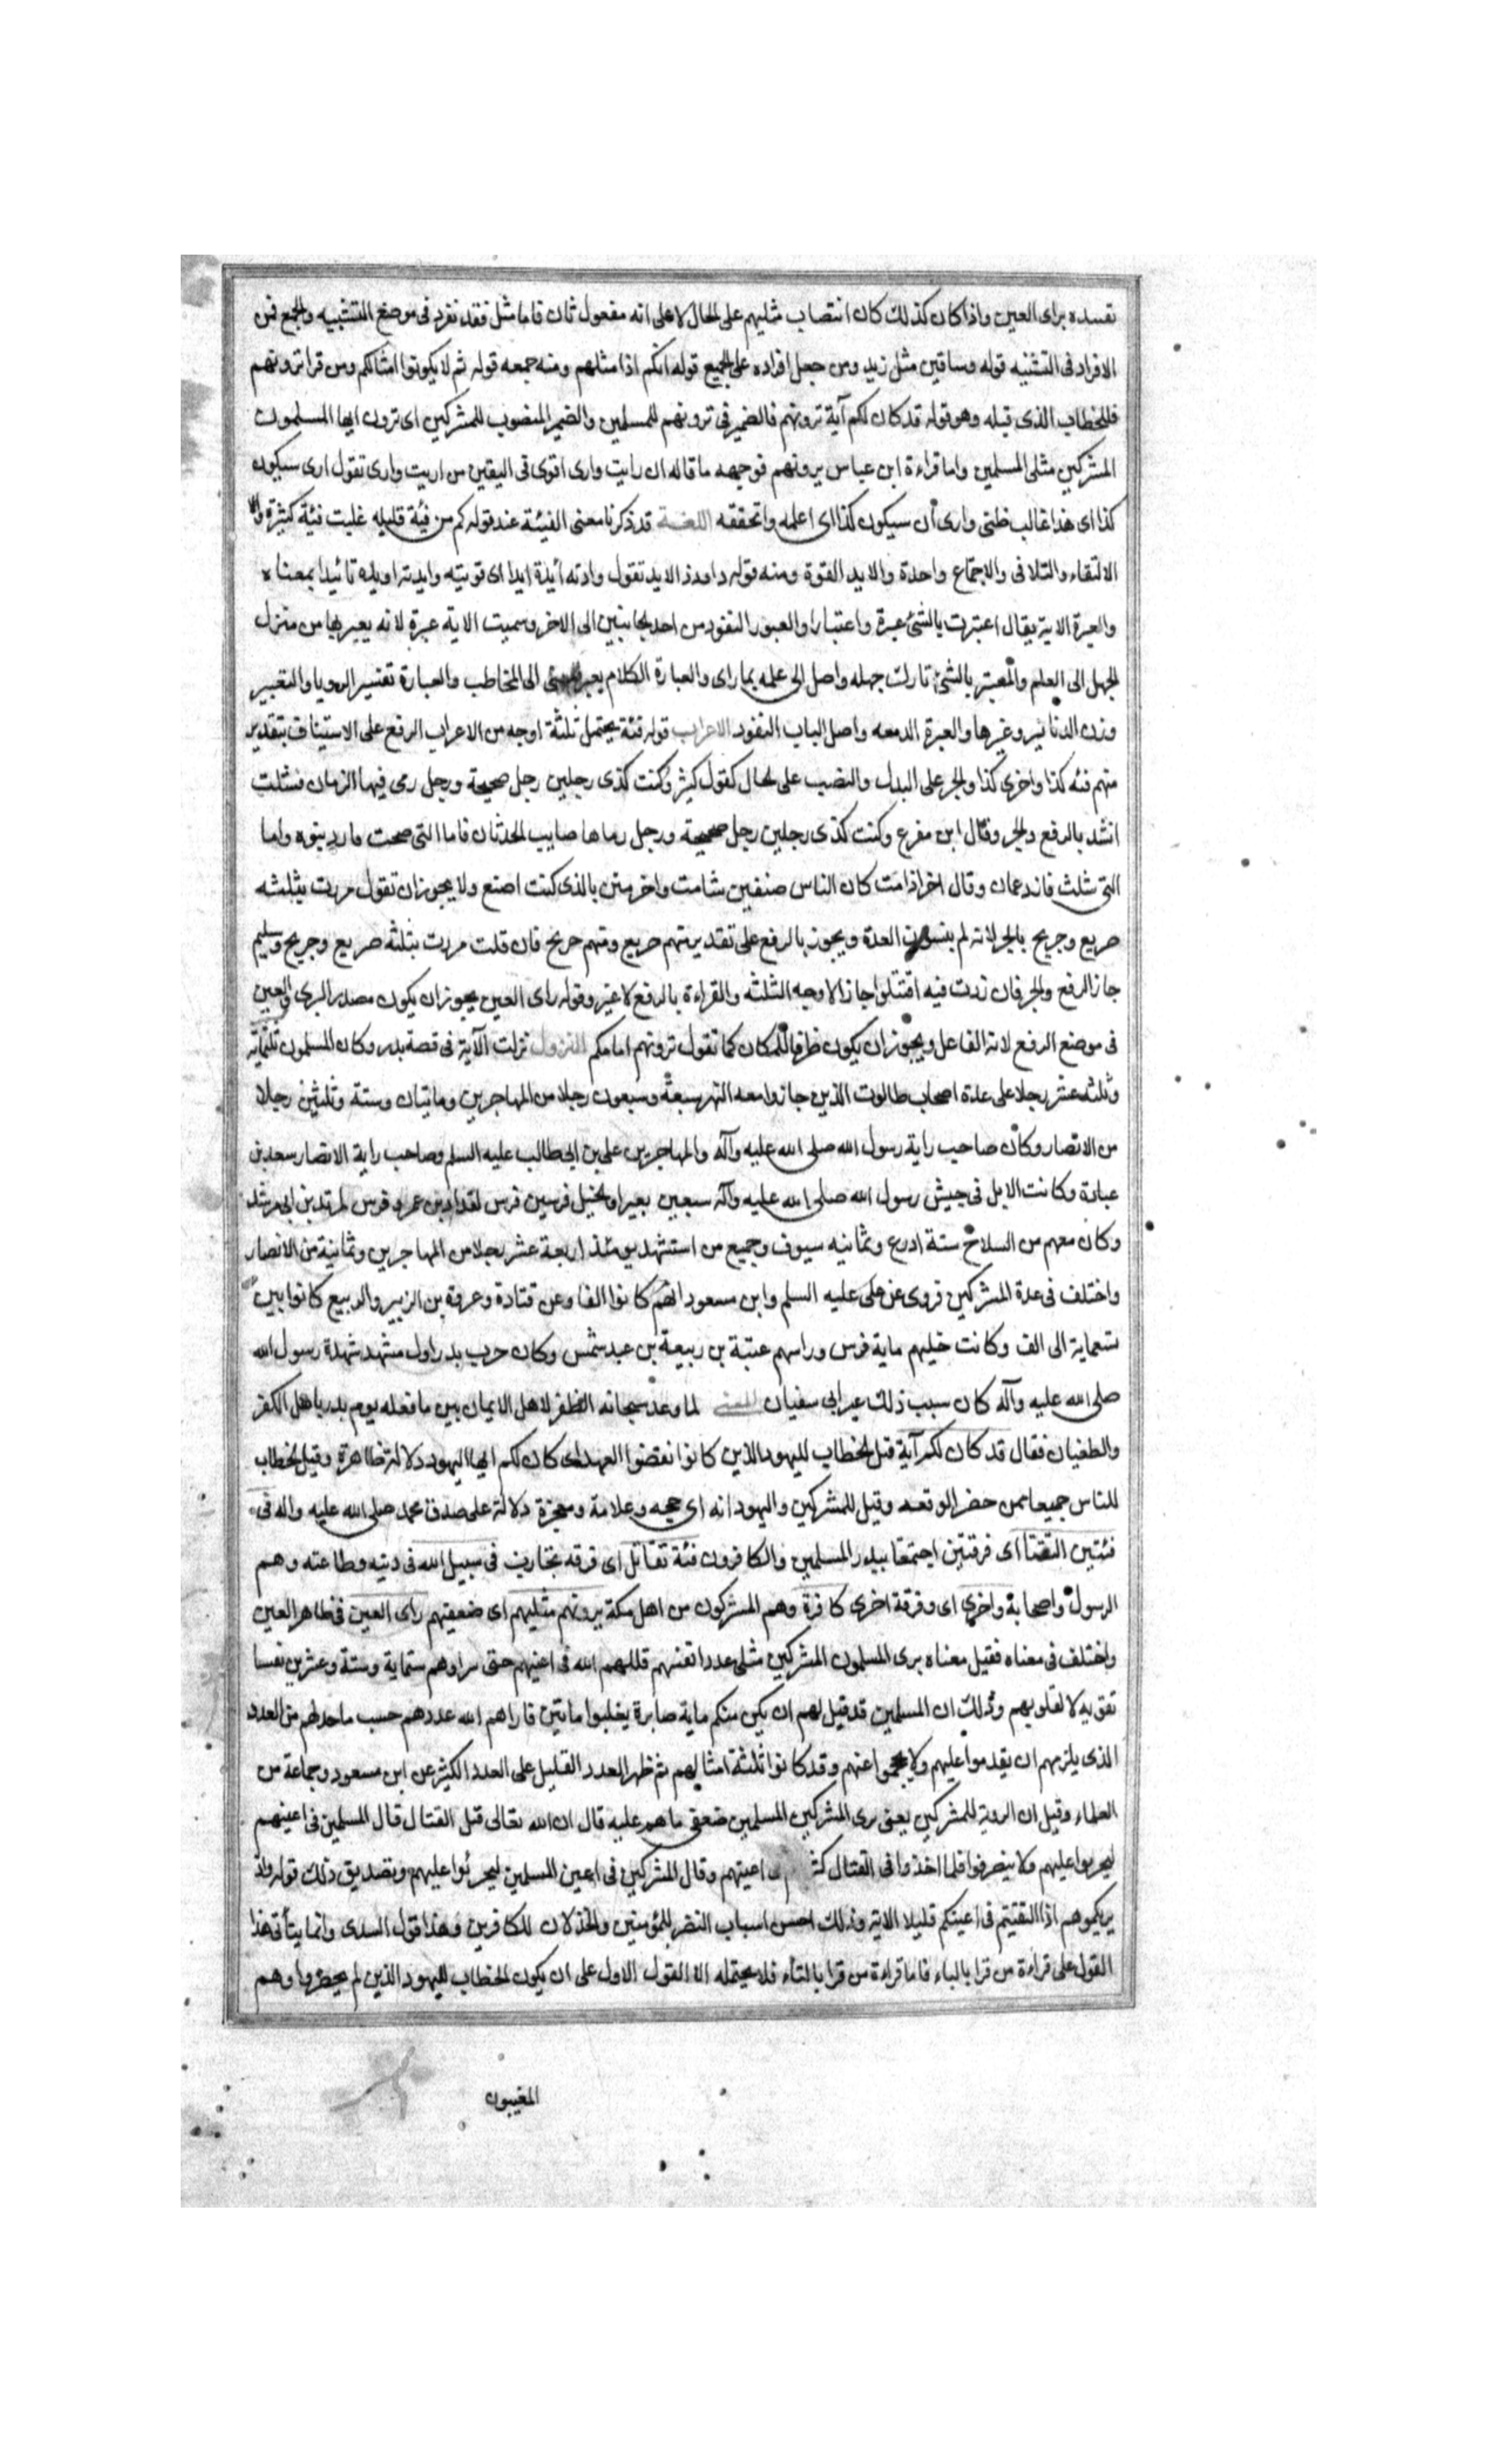 تقيده براى العين واذا كان كذلك كان انتصاب مثليهم على الحال لا على انه مفعول ثان فاما مثل فقد نفرد فى موضع التثنيه والجمع فمن
الافراد فى التثنيه قوله وساقين مثل زيد ومن جعل افراده على الجميع قوله انكم اذا مثلهم ومنه جمعه قوله ثم لا يكونوا امثالكم ومن قرا ترونهم
فللخطاب الذى قبله وهو قوله قد كان لكم آية ترونهم فالضمير فى ترونهم للمسلمين والضمير المنصوب للمشركين اى ترون ايها المسلمون
المشركين مثلى المسلمين واما قراءة ابن عباس يرونهم فوجهه ما قاله ان رايت وارى اقوى فى اليقين من اريت وارى تقول ارى سيكون
كذا اى هذا غالب ظنى وارى أن سيكون كذا اى اعلمه واتحققه اللغة قد ذكرنا معنى الفيئة عند قوله كم من فئة قليله غلبت فئة كثيرة
الالتقاء والتلاقى والاجتماع واحدة والايد القوة ومنه قوله داود ذ الايد تقول وادته أئيدة ايدا اى قويته وايدته اويده تائيدا بمعناه
والعبرة الاية يقال اعتبرت بالشئ عبرة واعتبارا والعبور النفود من احد لجانبين الى الاخر وسميت الاية عبرة لانه يعبر بها من منزل
لجهل الى العلم والمعتبر بالشئ تارك جهله واصل الى علمه بما راى والعبارة الكلام يعبر الى المخاطب والعبارة تفسير الرويا والتعبير
وزن الدنانير وغيرها والعبرة الدمعه واصل الباب النفود الاعراب قوله فئة يحتمل ثلثة اوجه من الاعراب الرفع على الاستيناف بتقدير
منهم فئه كذا واخرى كذا والجر على البدل والنصب على لحال كقول كثير وكنت كذى رجلين رجل صحيحة ورجل رمى فيها الزمان فشلت
انشد بالرفع والجر وقال ابن مفرع وكنت كذى رجلين رجل صحيحة ورجل رماها صايب الحدثان فاما التى صحت فازد شنوه واما
التى شلت فازد عمان وقال اخر اذا مت كان الناس صنفين شامت واخر مثن بالذى كنت اصنع ولا يجوز ان تقول مررت بثلثه
صريع وجريح بالجر لانه لم يستوف العدة ويجوز بالرفع على تقدير منهم صريع ومنهم جريح فان قلت مررت بثلثه صريع وجريح وسليم
جاز الرفع والجر فان زدت فيه اقتتلوا جاز الاوجه الثلثه والقراءة بالرفع لا غير وقوله راى العين يجوز ان يكون مصدر البرى والعين
فى موضع الرفع لانه الفاعل ويجوز ان يكون ظرفا للمكان كما تقول ترونهم امامكم النزول نزلت الآية فى قصة بدر وكان المسلمون ثلثمائه
وثلثه عشر رجلا على عدة اصحاب طالوت الذين جازوا معه النهر سبعة وسبعون رجلا من المهاجرين وماتيان وستة وثلثين رجلا
من الانصار وكان صاحب راية رسول الله صلى الله عليه وآله والمهاجرين على بن ابى طالب عليه السلم وصاحب راية الانصار سعد بن
عبادة وكانت الابل فى جيش رسول الله صلى الله عليه وآله سبعين بعيرا ولخيل فرسين فرس لمقداد بن عمر وفرس لمرثد بن ابى مرثد
وكان معهم من السلاح ستة ادرع وثمانيه سيوف وجميع من استشهد يومئذ اربعة عشر رجلا من المهاجرين وثمانية من الانصار
واختلف فى عدة المشركين فروى عن على عليه السلم وابن مسعود انهم كانوا الفا وعن قتادة وعروة بن الزبير والربيع كانوا بين
تسعماية الى الف وكانت خيلهم ماية فرس وراسهم عتبة بن ربيعة بن عبد شمس وكان حرب بدر اول مشهد شهدة رسول الله
صلى الله عليه وآله كان سبب ذلك عير ابى سفيان المعنى لما وعد سبحانه الظفر لاهل الايمان بين ما فعله يوم بدر باهل الكفر
والطغيان فقال قد كان لكم آية قيل لخطاب لليهود الذين كانوا نقضوا العهد اى كان لكم ايها اليهود دلالة ظاهرة وقيل لخطاب
للناس جميعا ممن حضر الوقعه وقيل للمشركين واليهود انه اى حجه وعلامة ومعجزة دلالة على صدق محمد صلى الله عليه واله فى
فئتين التقتا اى فرقتين اجتمعتا ببدر المسلمين والكافرون فئة تقاتل اى فرقه تحارب فى سبيل الله فى دينه وطاعته وهم
الرسول واصحابه واخرى اى وفرقة اخرى كافرة وهم المشركون من اهل مكة يرونهم مثليهم اى ضعفيهم راى العين فى ظاهر العين
واختلف فى معناه فقيل معناه يرى المسلمون المشركين مثلى عدد انفسهم قللهم الله فى اعينهم حتى راوهم ستماية وستة وعشرين نفسا
تقويه لا لقلوبهم وذلك ان المسلمين قد قيل لهم ان يكن منكم ماية صابرة يغلبوا ماتين فاراهم الله عددهم حسب ما حد لهم من العدد
الذى يلزمهم ان يقدموا عليهم ولا يحجموا عنهم وقد كانوا ثلثة امثالهم ثم ظهر العدد القليل على العدد الكثير عن ابن مسعود وجماعة من
العلماء وقيل ان الروية للمشركين يعنى يرى المشركين المسلمين ضعفى ما هم عليه قال ان الله تعالى قبل القتال قال المسلمين فى اعينهم
ليجربوا عليهم ولا ينصرفوا فلما اخذوا فى القتال اعينهم وقال المشركين فى اعين المسلمين ليجرئوا عليهم وتصديق ذلك قوله واذ
يريكموهم اذ التقيتم فى اعينكم قليلا الاية وذلك احسن اسباب النصر للمؤمنين والخذلان للكافرين وهذا قول السدى وانما يتأتى هذا
القول على قراءة من قرا بالياء فاما قراءة من قرا بالتاء فلا يحتمله الا القول الاول على ان يكون الخطاب لليهود الذين لم يحضروا وهم
المغيبون